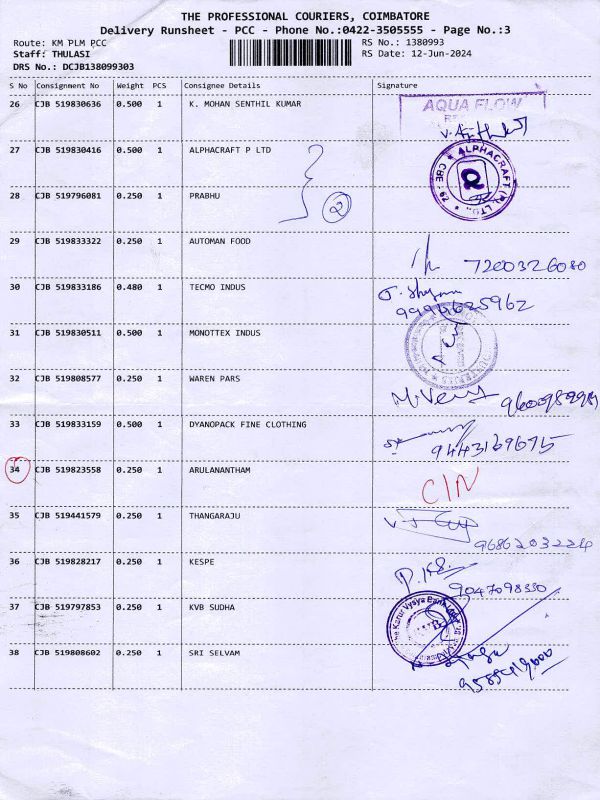 THE PROFESSIONAL COURIERS, COIMBATORE
Delivery Runsheet - PCC - Phone No.:0422-3505555 - Page No.:3
Route: KM PLM PCC RS No.: 1380993
Staff: THULASI RS Date: 12-Jun-2024
DRS No.: DCJB138099303
S No Consignment No Weight PCS Consignee Details Signature
26 CJB 519830636 0.500 1 K. MOHAN SENTHIL KUMAR AQUA FLOW
27 CJB 519830416 0.500 1 ALPHACRAFT P LTD ALPHACRAFT (P) LTD. CBE - 29
28 CJB 519796081 0.250 1 PRABHU 2
29 CJB 519833322 0.250 1 AUTOMAN FOOD 7200326080
30 CJB 519833186 0.480 1 TECMO INDUS
31 CJB 519830511 0.500 1 MONOTTEX INDUS
32 CJB 519808577 0.250 1 WAREN PARS
33 CJB 519833159 0.500 1 DYANOPACK FINE CLOTHING 9443169675
34 CJB 519823558 0.250 1 ARULANANTHAM CIN
35 CJB 519441579 0.250 1 THANGARAJU
36 CJB 519828217 0.250 1 KESPE
37 CJB 519797853 0.250 1 KVB SUDHA The Karur Vysya Bank
38 CJB 519808602 0.250 1 SRI SELVAM